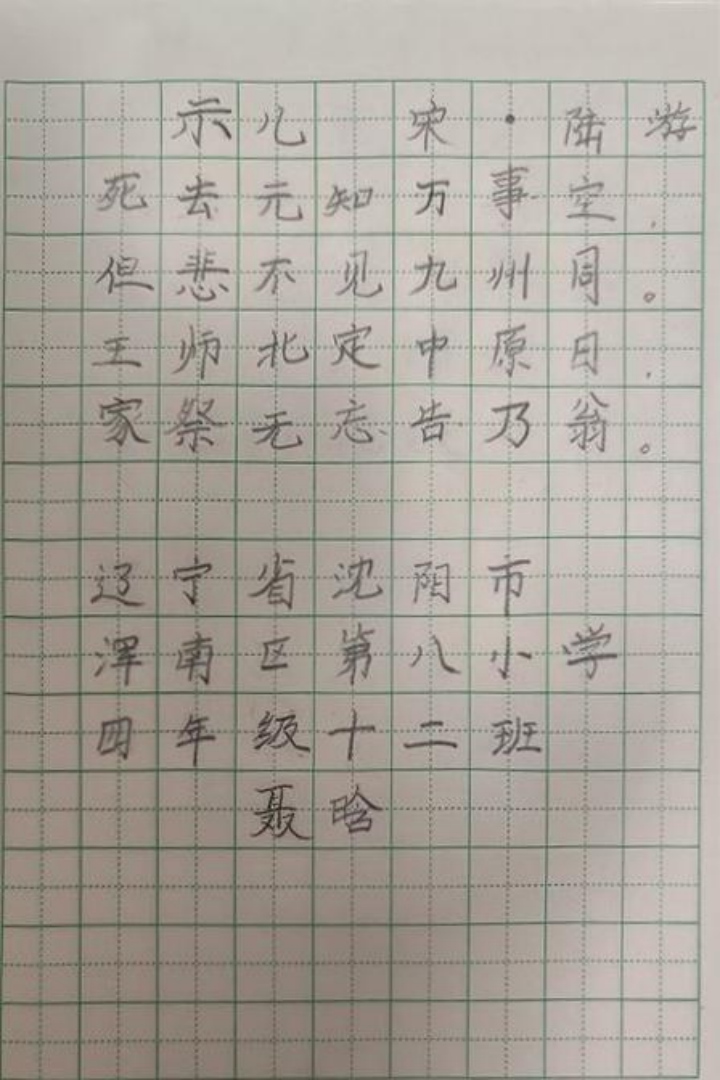 示儿 宋·陆游
死去元知万事空,
但悲不见九州同。
王师北定中原日,
家祭无忘告乃翁。
辽宁省沈阳市
浑南区第八小学
四年级十二班
聂晗